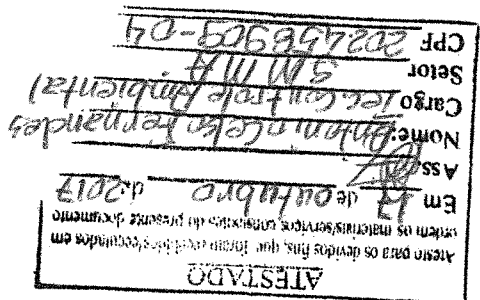 ATESTADO
Atesto para os devidos fins, que foram recebidos/executados em
ordem os materiais/serviços constantes do presente documento
Em 17 de outubro de 2017
Ass
Nome: Antonio Celso Fernandes
Cargo Tec. Controle Ambiental
Setor SMMA
CPF 202458909-04